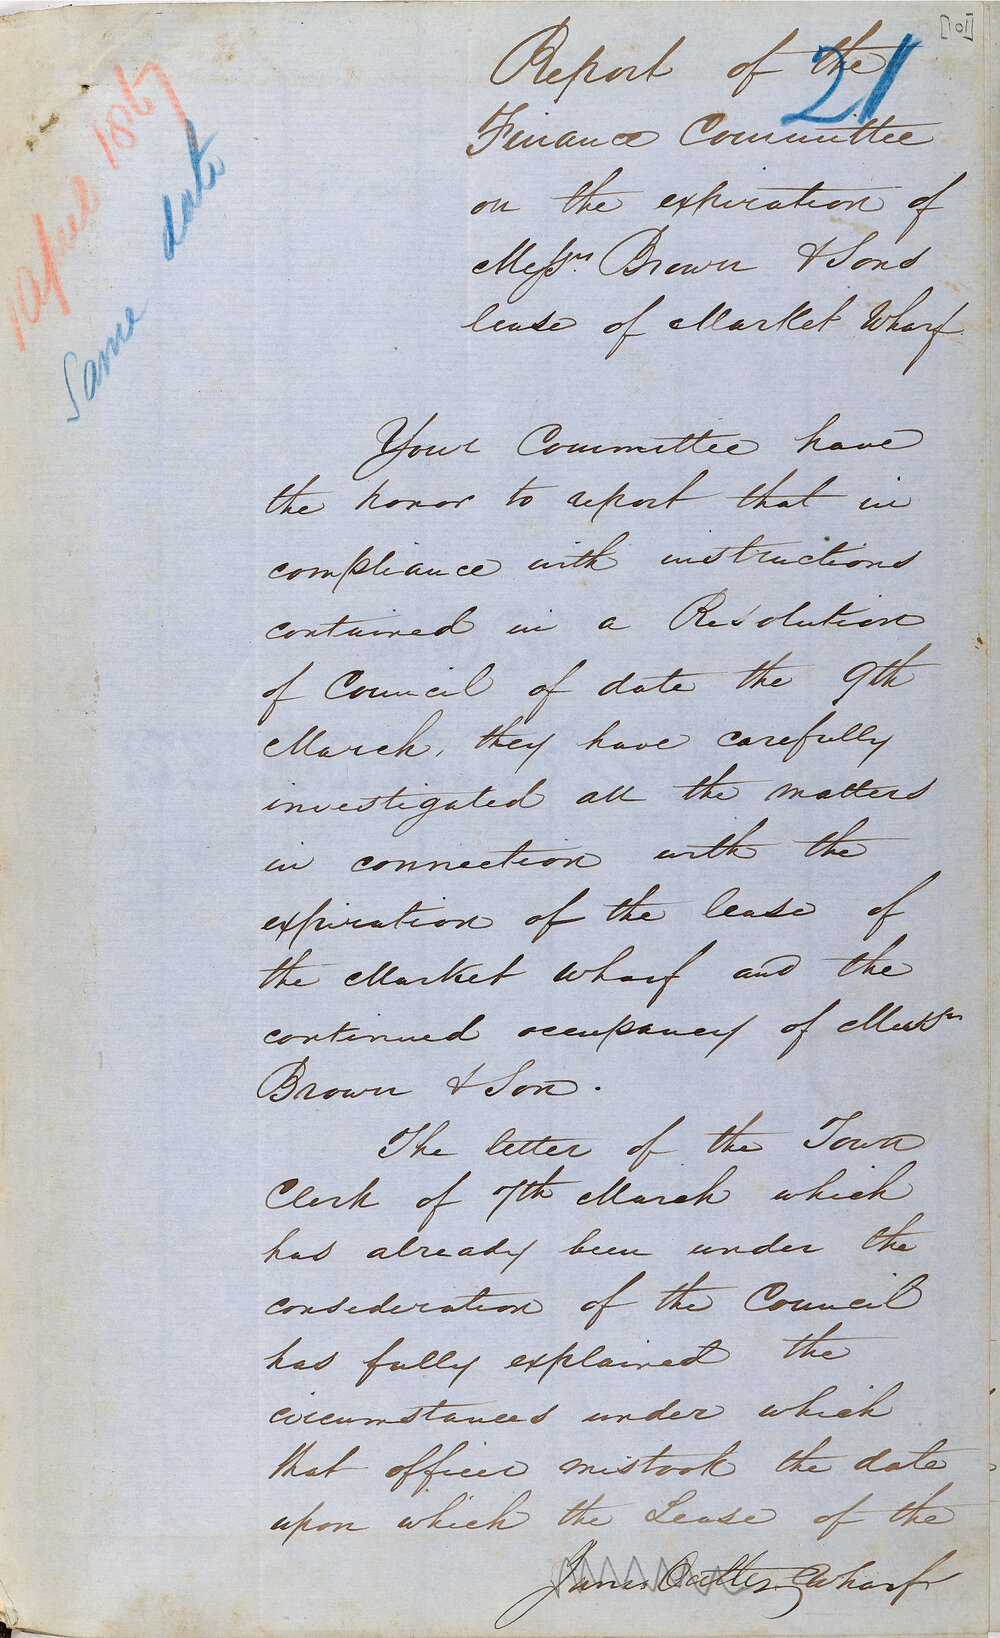 [101]
21
10 April 1867
Same date
Report of the
Finance Committee
on the expiration of
Messrs. Brown & Sons
lease of Market Wharf
Your Committee have
the honor to report that in
compliance with instructions
contained in a Resolution
of Council of date the 9th
March, they have carefully
investigated all the matters
in connection with the
expiration of the lease of
the Market Wharf and the
continued occupancy of Messrs
Brown & Son.
The letter of the Town
Clerk of 7th March which
has already been under the
consideration of the Council
has fully explained the
circumstances under which
that officer mistook the date
upon which the Lease of the
James Oatley Wharf